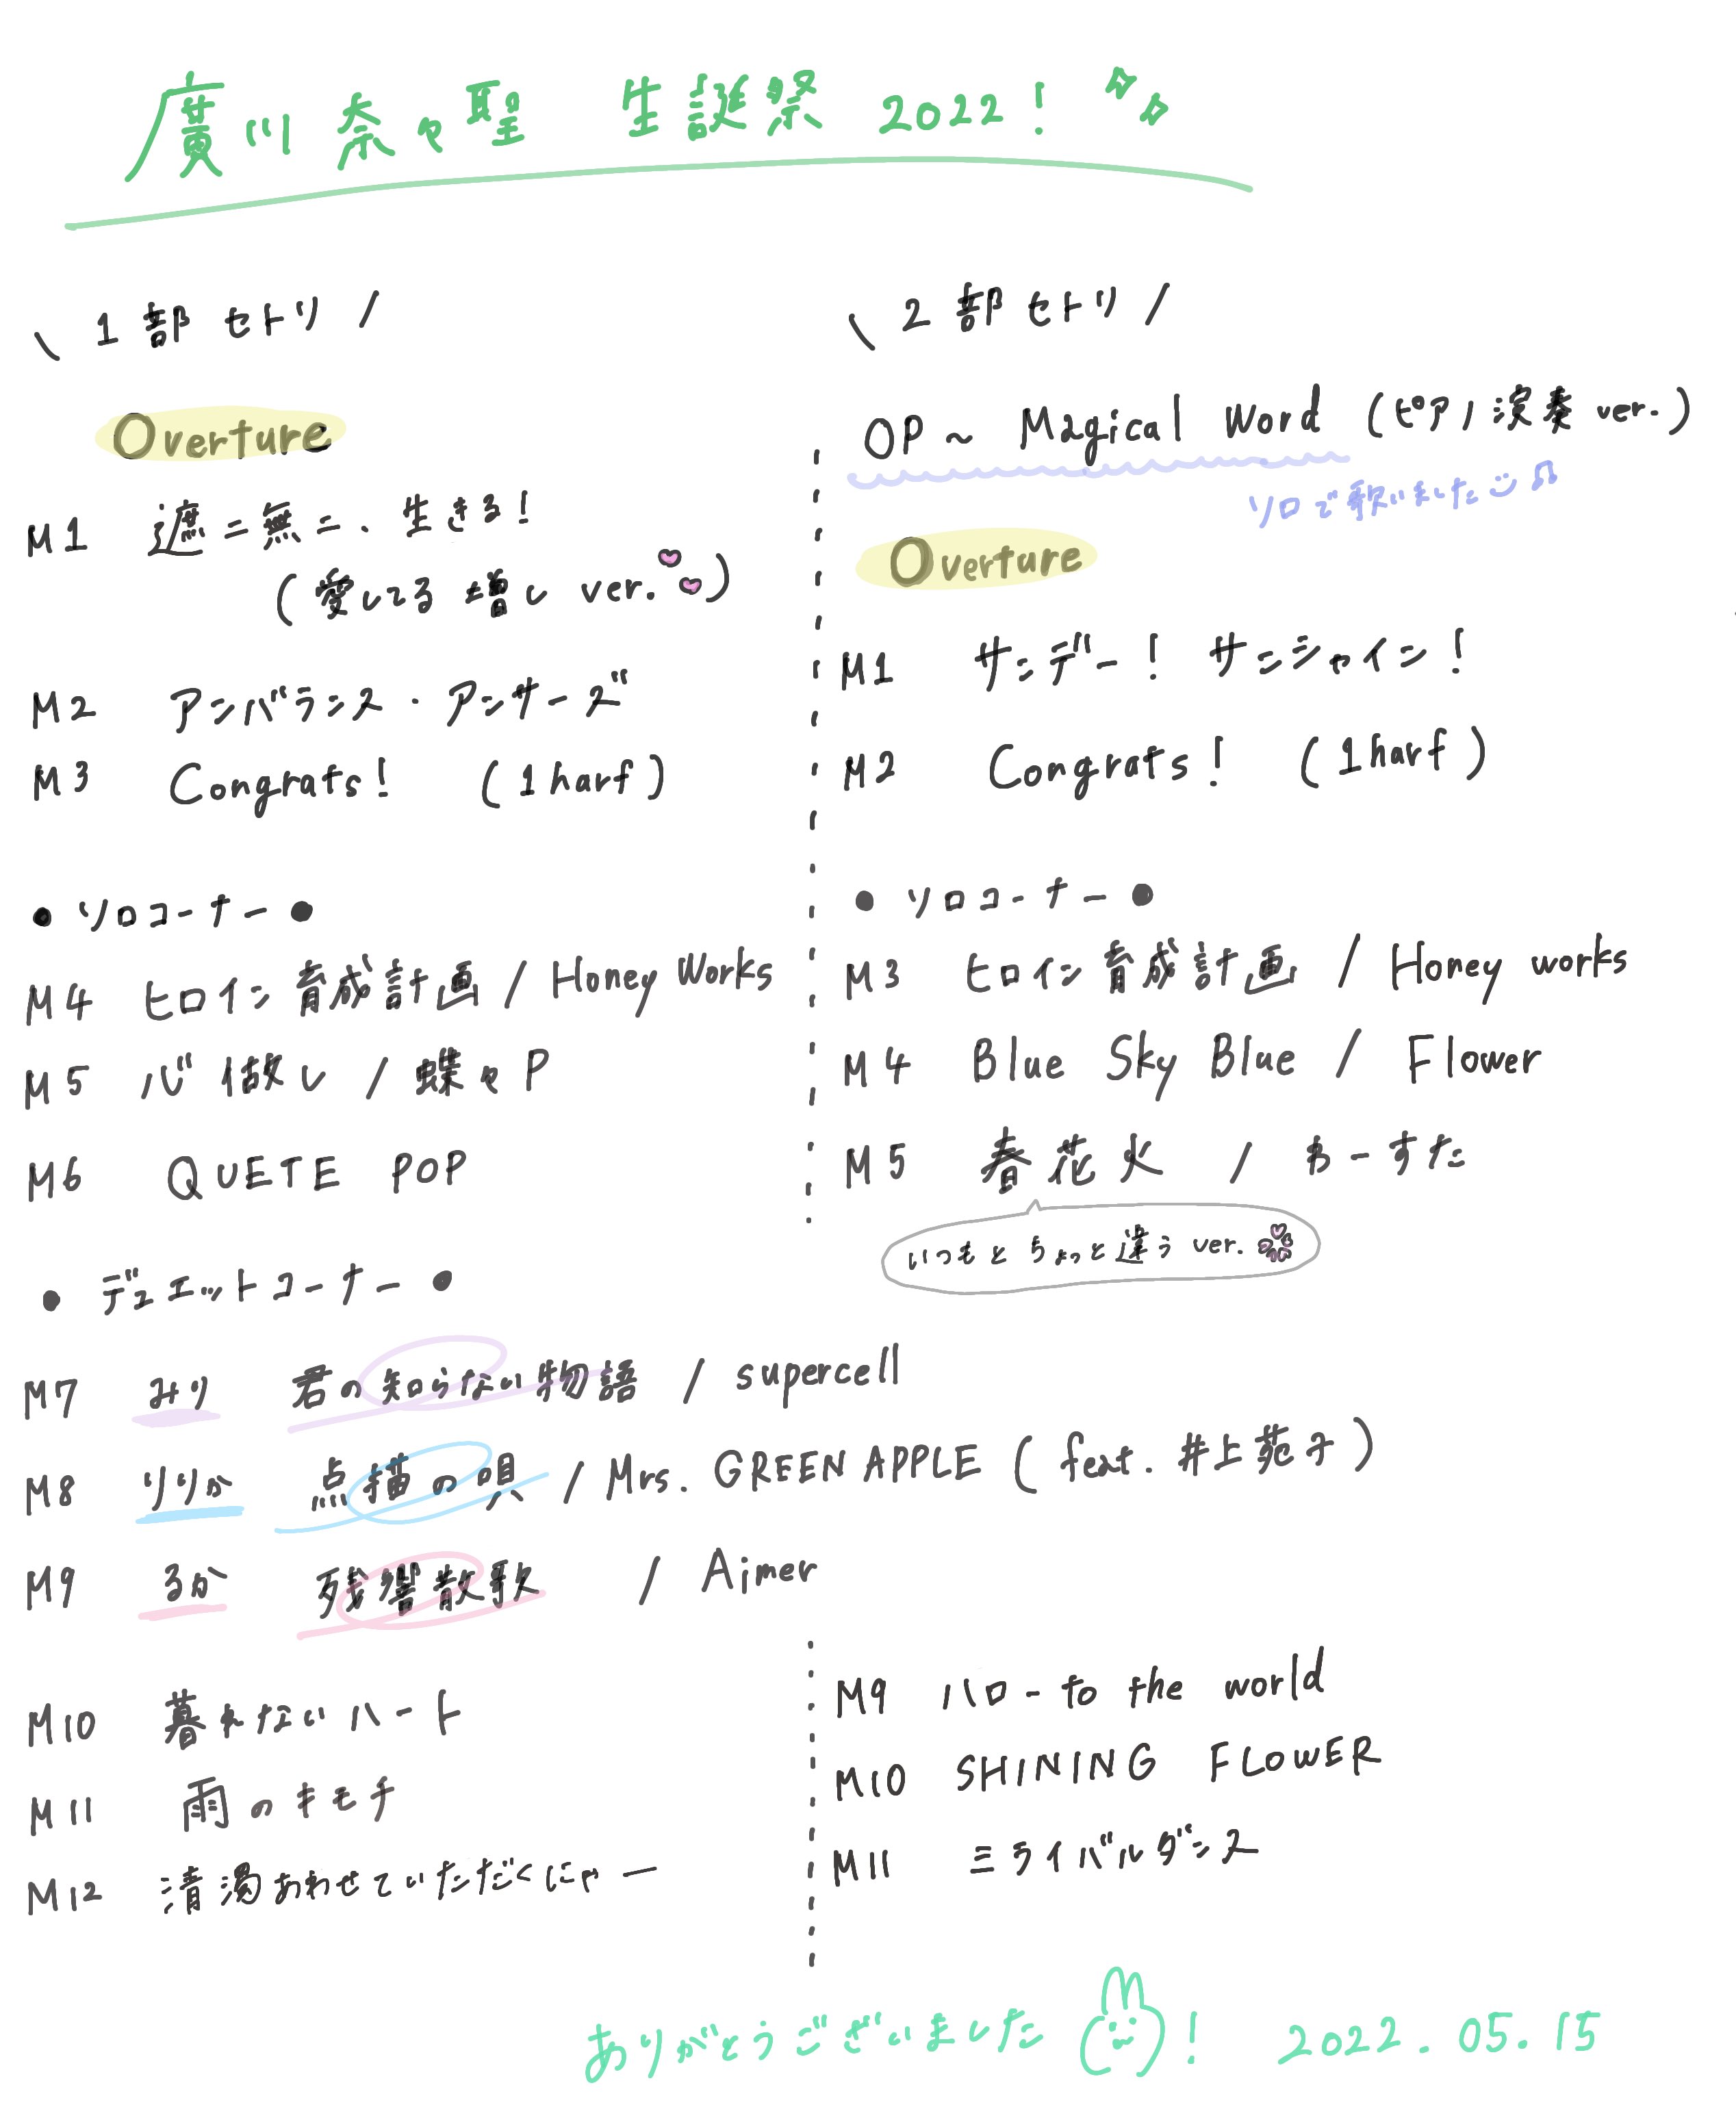 廣川奈々聖 生誕祭 2022!
\ 1部セトリ /
Overture
M1 遮二無二、生きる!
(愛してる増し ver.)
M2 アンバランス・アンサーズ
M3 Congrats! (1harf)
● ソロコーナー ●
M4 ヒロイン育成計画 / Honey Works
M5 心做し / 蝶々P
M6 QUETE POP
\ 2部セトリ /
OP~ Magical Word (ピアノ演奏 ver.)
ソロで歌いました
Overture
M1 サンデー! サンシャイン!
M2 Congrats! (1harf)
● ソロコーナー ●
M3 ヒロイン育成計画 / Honey works
M4 Blue Sky Blue / Flower
M5 春花火 / わーすた
いつもとちょっと違う ver.
● デュエットコーナー ●
M7 みり 君の知らない物語 / supercell
M8 りりか 点描の唄 / Mrs. GREEN APPLE (feat. 井上苑子)
M9 るか 残響散歌 / Aimer
M10 暮れないハート
M11 雨のキモチ
M12 清濁あわせていただくにゃー
M9 ハロー to the world
M10 SHINING FLOWER
M11 ミライバルダンス
ありがとうございました! 2022.05.15